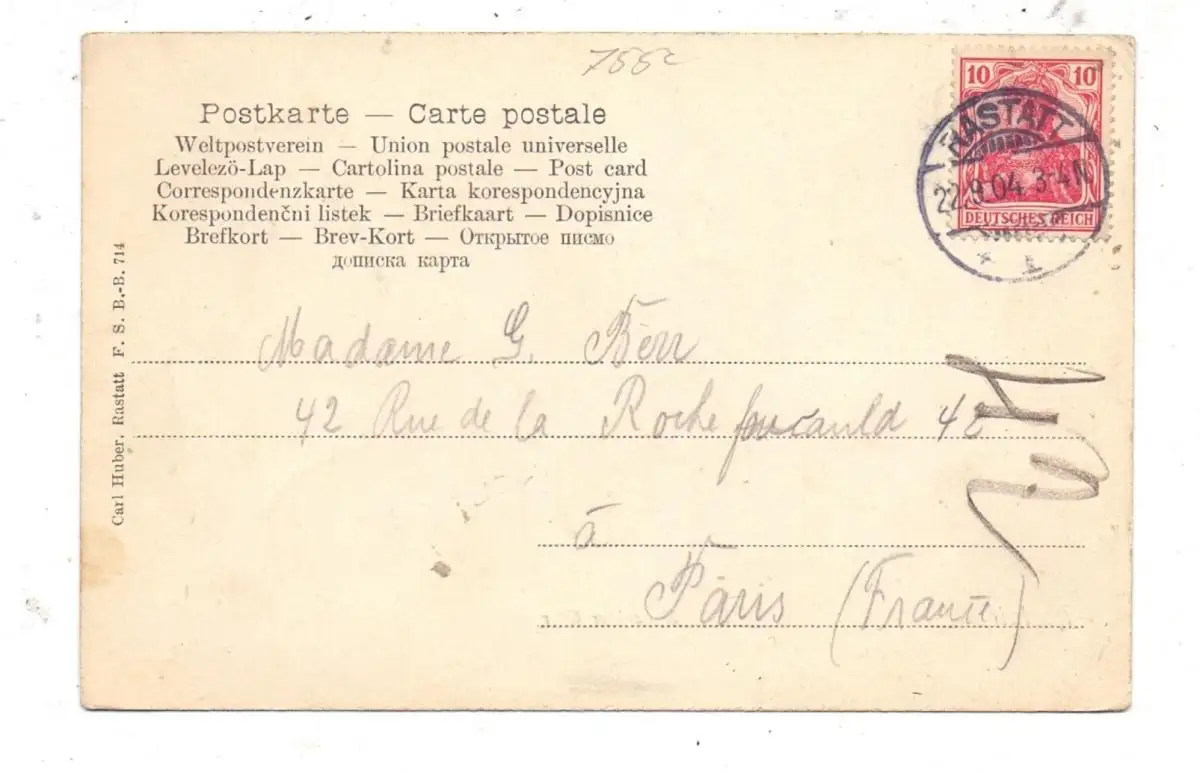 755c
Postkarte — Carte postale
Weltpostverein — Union postale universelle
Levelezö-Lap — Cartolina postale — Post card
Correspondenzkarte — Karta korespondencyjna
Korespondenčni listek — Briefkaart — Dopisnice
Brefkort — Brev-Kort — Открытое писмо
дописка карта
10 10
DEUTSCHES REICH
RASTATT
22.9.04. 3-4N
* 1
Carl Huber, Rastatt F. S. B.-B. 714
Madame G. Berr
42 Rue de la Rochefoucauld 42
à
Paris (France)